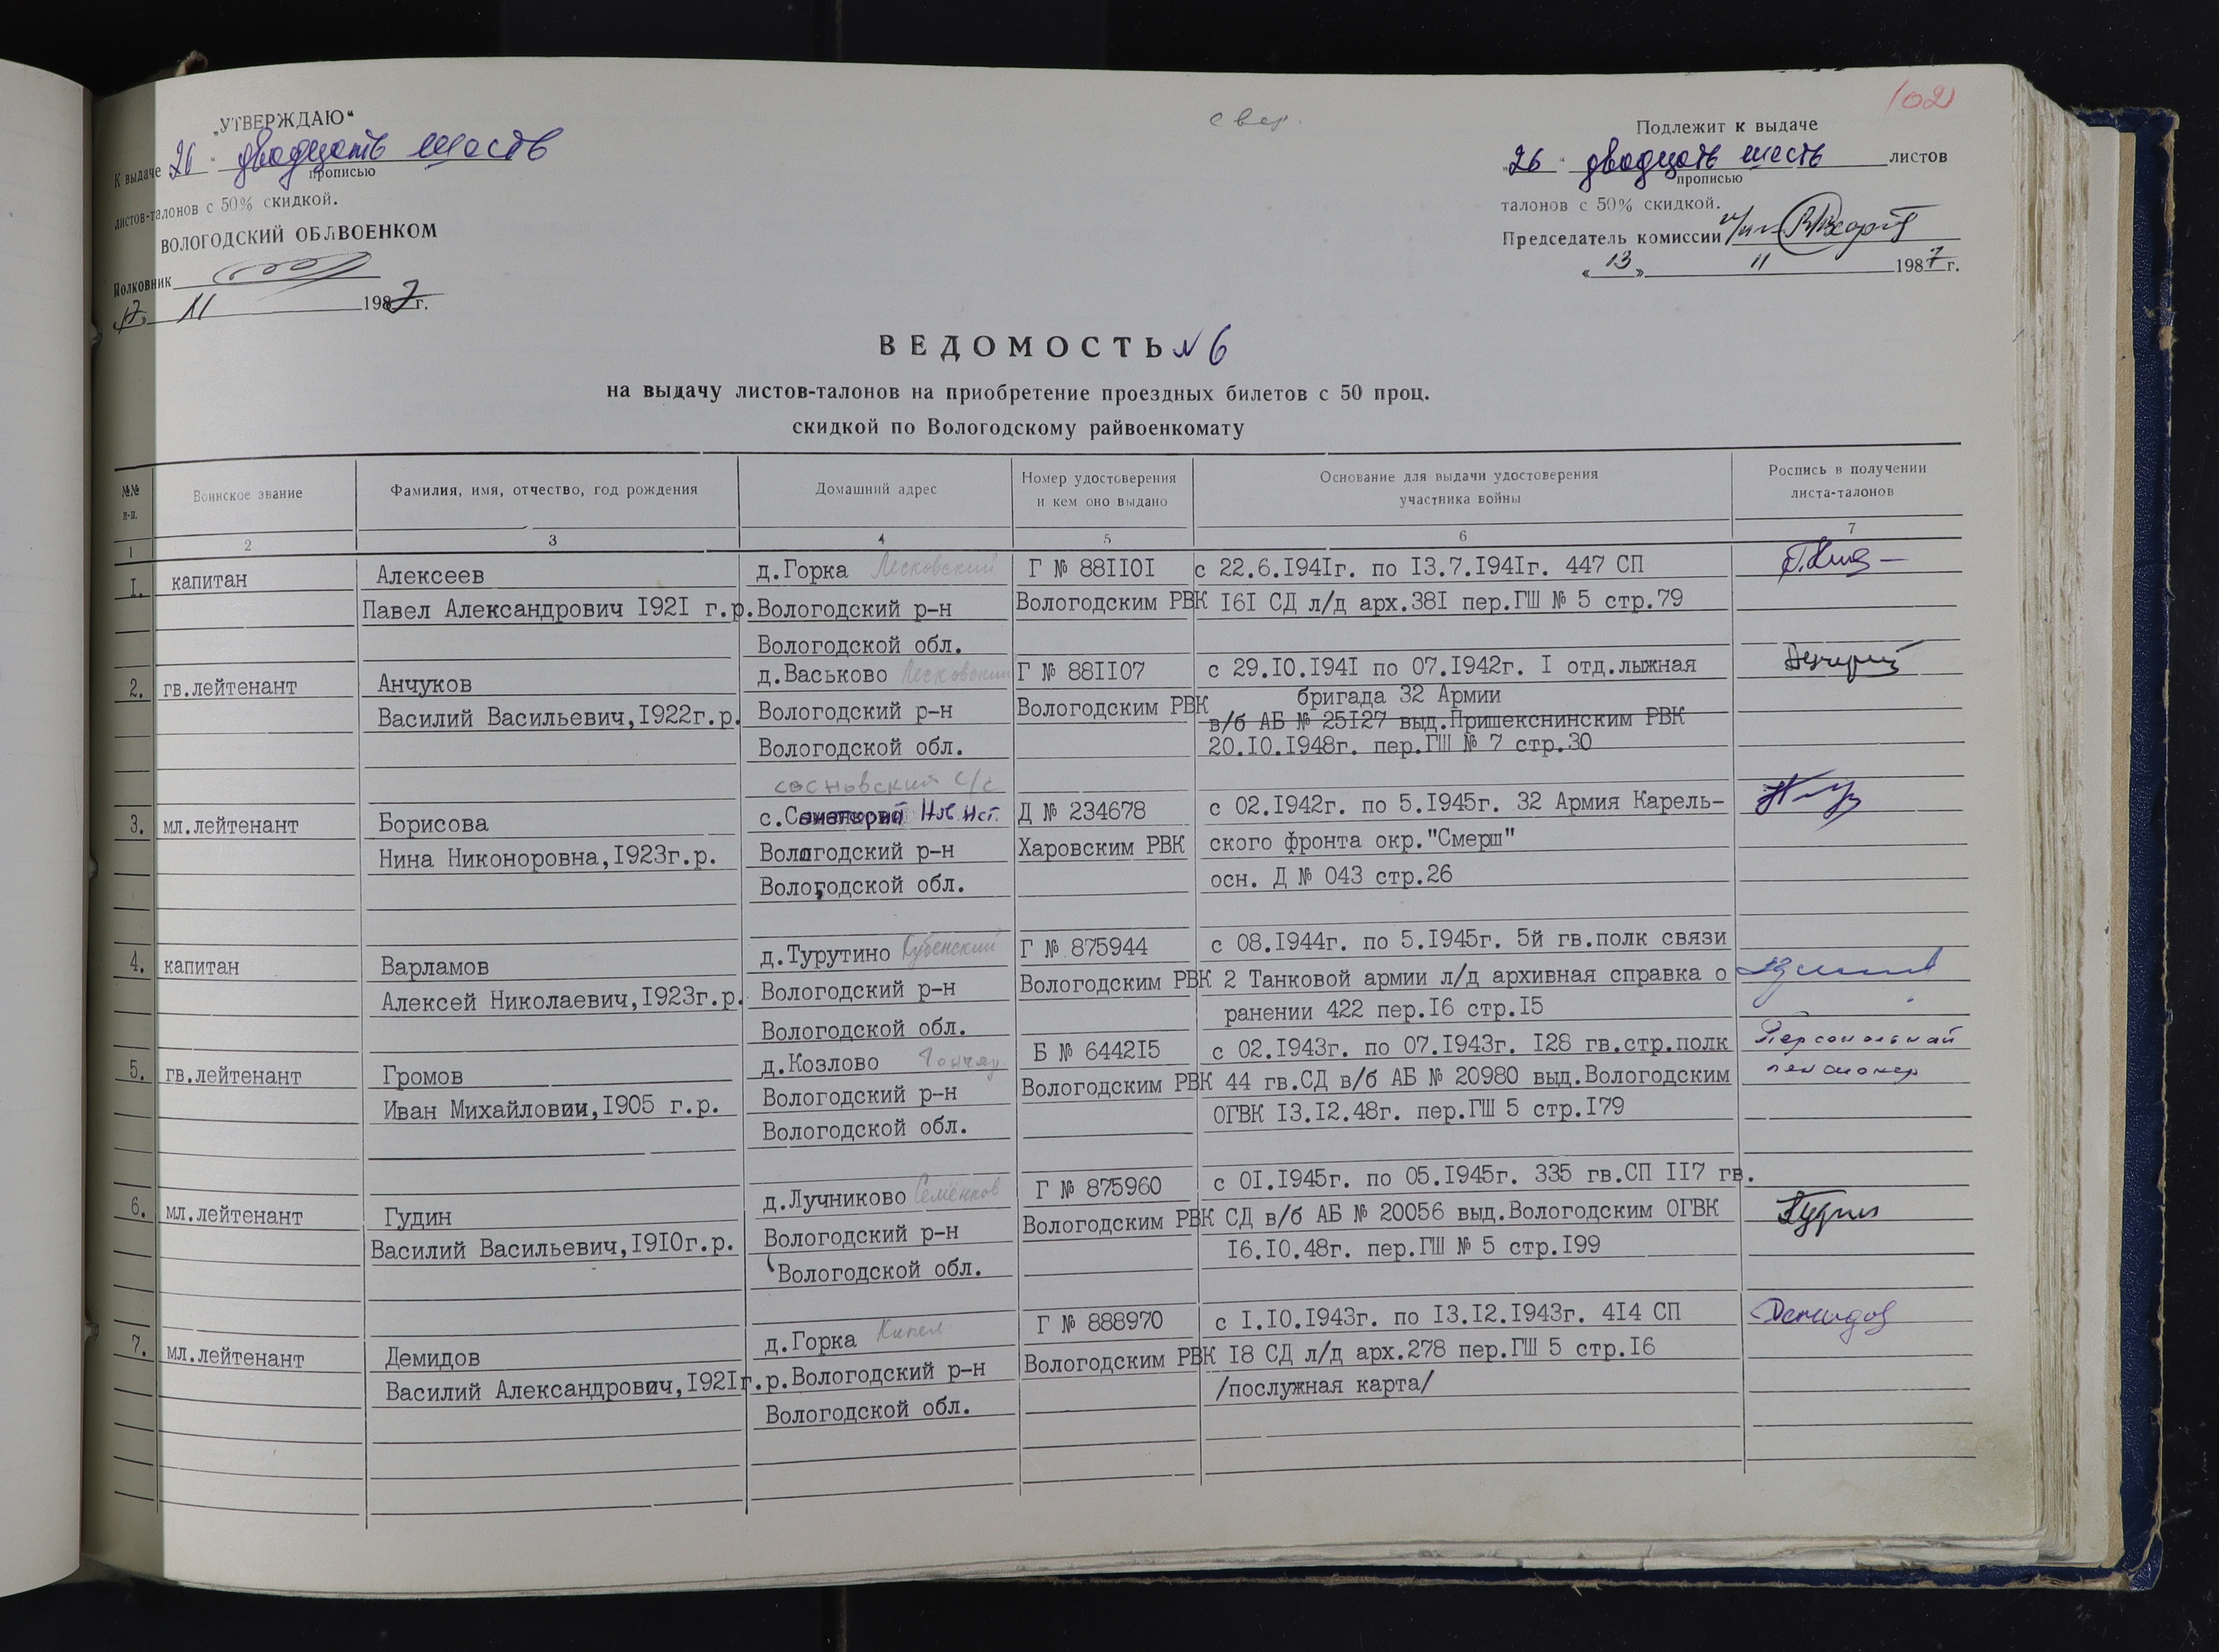 102
свер.
„УТВЕРЖДАЮ“
К выдаче 26 " двадцать шесть
прописью
листов-талонов с 50% скидкой.
ВОЛОГОДСКИЙ ОБЛВОЕНКОМ
Полковник
17 11 1987г.
Подлежит к выдаче
„26“ двадцать шесть листов
прописью
талонов с 50% скидкой.
Председатель комиссии
«13» 11 1987г.
ВЕДОМОСТЬ № 6
на выдачу листов-талонов на приобретение проездных билетов с 50 проц.
скидкой по Вологодскому райвоенкомату
№№ п-п. Воинское звание Фамилия, имя, отчество, год рождения Домашний адрес Номер удостоверения и кем оно выдано Основание для выдачи удостоверения участника войны Роспись в получении листа-талонов
1 2 3 4 5 6 7
I. капитан Алексеев д.Горка Лесковский Г № 88II0I с 22.6.I94Iг. по I3.7.I94Iг. 447 СП
Павел Александрович I92I г.р. Вологодский р-н Вологодским РВК I6I СД л/д арх.38I пер.ГШ № 5 стр.79
Вологодской обл.
2. гв.лейтенант Анчуков д.Васьково Лесковский Г № 88II07 с 29.I0.I94I по 07.I942г. I отд.лыжная
Василий Васильевич,I922г.р. Вологодский р-н Вологодским РВК бригада 32 Армии
в/б АБ № 25I27 выд.Пришекснинским РВК
Вологодской обл. 20.I0.I948г. пер.ГШ № 7 стр.30
сосновский с/с
3. мл.лейтенант Борисова с. Д № 234678 с 02.I942г. по 5.I945г. 32 Армия Карель-
Нина Никоноровна,I923г.р. Вологодский р-н Харовским РВК ского фронта окр."Смерш"
Вологодской обл. осн. Д № 043 стр.26
4. капитан Варламов д.Турутино Кубенский Г № 875944 с 08.I944г. по 5.I945г. 5й гв.полк связи
Алексей Николаевич,I923г.р. Вологодский р-н Вологодским РВК 2 Танковой армии л/д архивная справка о
Вологодской обл. ранении 422 пер.I6 стр.I5
5. гв.лейтенант Громов д.Козлово Б № 6442I5 с 02.I943г. по 07.I943г. I28 гв.стр.полк Персональный
Иван Михайлович,I905 г.р. Вологодский р-н Вологодским РВК 44 гв.СД в/б АБ № 20980 выд.Вологодским пенсионер
Вологодской обл. ОГВК I3.I2.48г. пер.ГШ 5 стр.I79
6. мл.лейтенант Гудин д.Лучниково Семенков Г № 875960 с 0I.I945г. по 05.I945г. 335 гв.СП II7 гв.
Василий Васильевич,I9I0г.р. Вологодский р-н Вологодским РВК СД в/б АБ № 20056 выд.Вологодским ОГВК
Вологодской обл. I6.I0.48г. пер.ГШ № 5 стр.I99
7. мл.лейтенант Демидов д.Горка Кипел Г № 888970 с I.I0.I943г. по I3.I2.I943г. 4I4 СП Демидов
Василий Александрович,I92Iг.р. Вологодский р-н Вологодским РВК I8 СД л/д арх.278 пер.ГШ 5 стр.I6
Вологодской обл. /послужная карта/